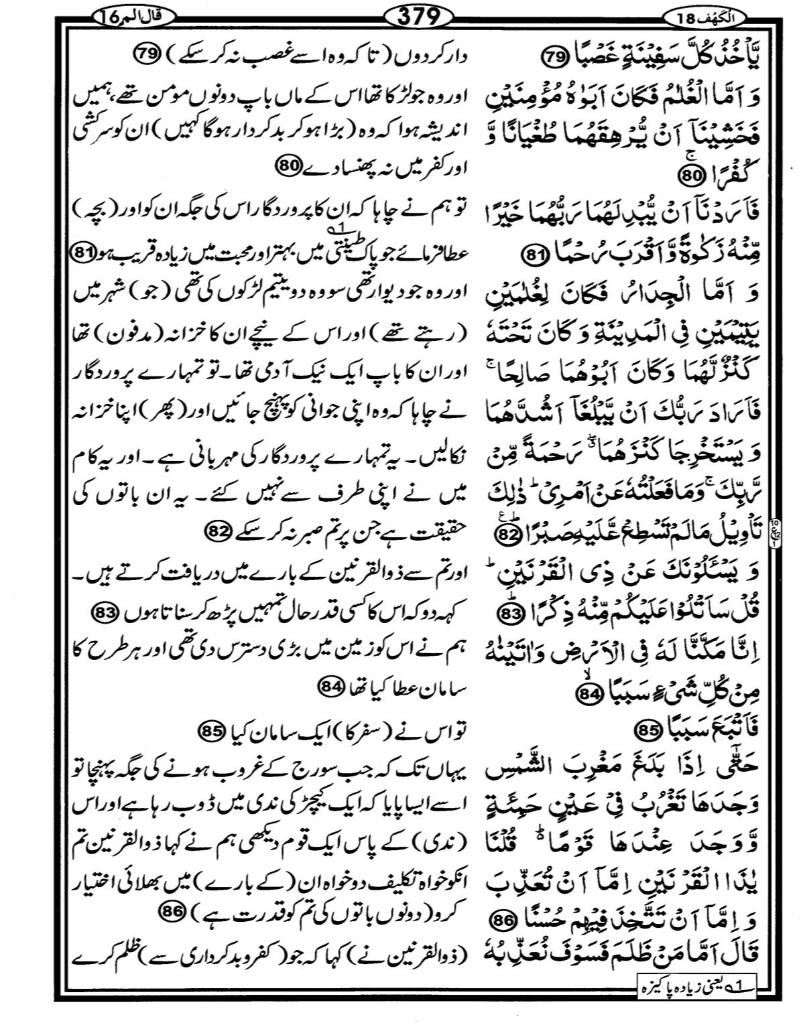 الكهف 18
379
قال الم 16
يَّاْخُذُ كُلَّ سَفِيْنَةٍ غَصْبًا 79
وَ اَمَّا الْغُلٰمُ فَكَانَ اَبَوٰهُ مُؤْمِنَيْنِ
فَخَشِيْنَاۤ اَنْ يُّرْهِقَهُمَا طُغْيَانًا وَّ
كُفْرًا ۚ 80
فَاَرَدْنَاۤ اَنْ يُّبْدِلَهُمَا رَبُّهُمَا خَيْرًا
مِّنْهُ زَكٰوةً وَّ اَقْرَبَ رُحْمًا 81
وَ اَمَّا الْجِدَارُ فَكَانَ لِغُلٰمَيْنِ
يَتِيْمَيْنِ فِى الْمَدِيْنَةِ وَ كَانَ تَحْتَهٗ
كَنْزٌ لَّهُمَا وَ كَانَ اَبُوْهُمَا صَالِحًا ۚ
فَاَرَادَ رَبُّكَ اَنْ يَّبْلُغَاۤ اَشُدَّهُمَا
وَ يَسْتَخْرِجَا كَنْزَهُمَا ۖ رَحْمَةً مِّنْ
رَّبِّكَ ۚ وَمَا فَعَلْتُهٗ عَنْ اَمْرِىْ ؕ ذٰلِكَ
تَاْوِيْلُ مَا لَمْ تَسْطِعْ عَّلَيْهِ صَبْرًا ؕ 82
وَ يَسْـَٔلُوْنَكَ عَنْ ذِى الْقَرْنَيْنِ ؕ
قُلْ سَاَتْلُوْا عَلَيْكُمْ مِّنْهُ ذِكْرًا ؕ 83
اِنَّا مَكَّنَّا لَهٗ فِى الْاَرْضِ وَ اٰتَيْنٰهُ
مِنْ كُلِّ شَىْءٍ سَبَبًا ۙ 84
فَاَتْبَعَ سَبَبًا 85
حَتّٰۤى اِذَا بَلَغَ مَغْرِبَ الشَّمْسِ
وَجَدَهَا تَغْرُبُ فِىْ عَيْنٍ حَمِئَةٍ
وَّ وَجَدَ عِنْدَهَا قَوْمًا ؕ قُلْنَا
يٰذَا الْقَرْنَيْنِ اِمَّاۤ اَنْ تُعَذِّبَ
وَ اِمَّاۤ اَنْ تَتَّخِذَ فِيْهِمْ حُسْنًا 86
قَالَ اَمَّا مَنْ ظَلَمَ فَسَوْفَ نُعَذِّبُهٗ
دار کردوں (تاکہ وہ اسے غصب نہ کر سکے) 79
اور وہ جو لڑکا تھا اس کے ماں باپ دونوں مؤمن تھے، ہمیں
اندیشہ ہوا کہ وہ (بڑا ہو کر بد کردار ہوگا کہیں) ان کو سرکشی
اور کفر میں نہ پھنسا دے 80
تو ہم نے چاہا کہ ان کا پروردگار اس کی جگہ ان کو اور (بچہ)
عطا فرمائے جو پاک طینتی 1 میں بہتر اور محبت میں زیادہ قریب ہو 81
اور وہ جو دیوار تھی سو وہ دو یتیم لڑکوں کی تھی (جو) شہر میں
(رہتے تھے) اور اس کے نیچے ان کا خزانہ (مدفون) تھا
اور ان کا باپ ایک نیک آدمی تھا۔ تو تمہارے پروردگار
نے چاہا کہ وہ اپنی جوانی کو پہنچ جائیں اور (پھر) اپنا خزانہ
نکالیں۔ یہ تمہارے پروردگار کی مہربانی ہے۔ اور یہ کام
میں نے اپنی طرف سے نہیں کئے۔ یہ ان باتوں کی
حقیقت ہے جن پر تم صبر نہ کر سکے 82
اور تم سے ذوالقرنین کے بارے میں دریافت کرتے ہیں۔
کہہ دو کہ اس کا کسی قدر حال تمہیں پڑھ کر سناتا ہوں 83
ہم نے اس کو زمین میں بڑی دسترس دی تھی اور ہر طرح کا
سامان عطا کیا تھا 84
تو اس نے (سفر کا) ایک سامان کیا 85
یہاں تک کہ جب سورج کے غروب ہونے کی جگہ پہنچا تو
اسے ایسا پایا کہ ایک کیچڑ کی ندی میں ڈوب رہا ہے اور اس
(ندی) کے پاس ایک قوم دیکھی ہم نے کہا ذوالقرنین تم
انکو خواہ تکلیف دو خواہ ان (کے بارے) میں بھلائی اختیار
کرو (دونوں باتوں کی تم کو قدرت ہے) 86
(ذوالقرنین نے) کہا کہ جو (کفر و بدکرداری سے) ظلم کرے
1 یعنی زیادہ پاکیزہ